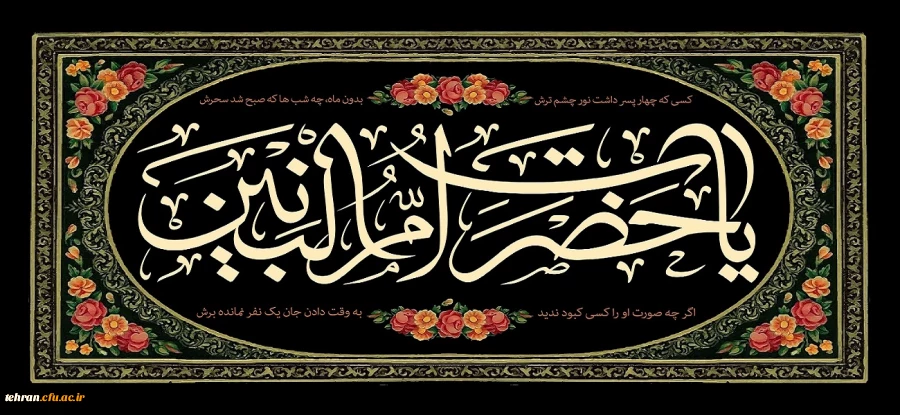 کسی که چهار پسر داشت نور چشم ترش
بدون ماه، چه شب ها که صبح شد سحرش
یا حضرت امّ البنین
اگر چه صورت او را کسی کبود ندید
به وقت دادن جان یک نفر نمانده برش
tehran.cfu.ac.ir